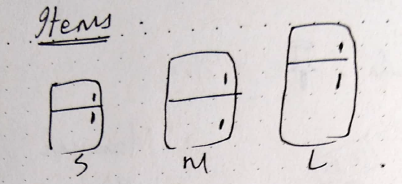 Items :
S M L